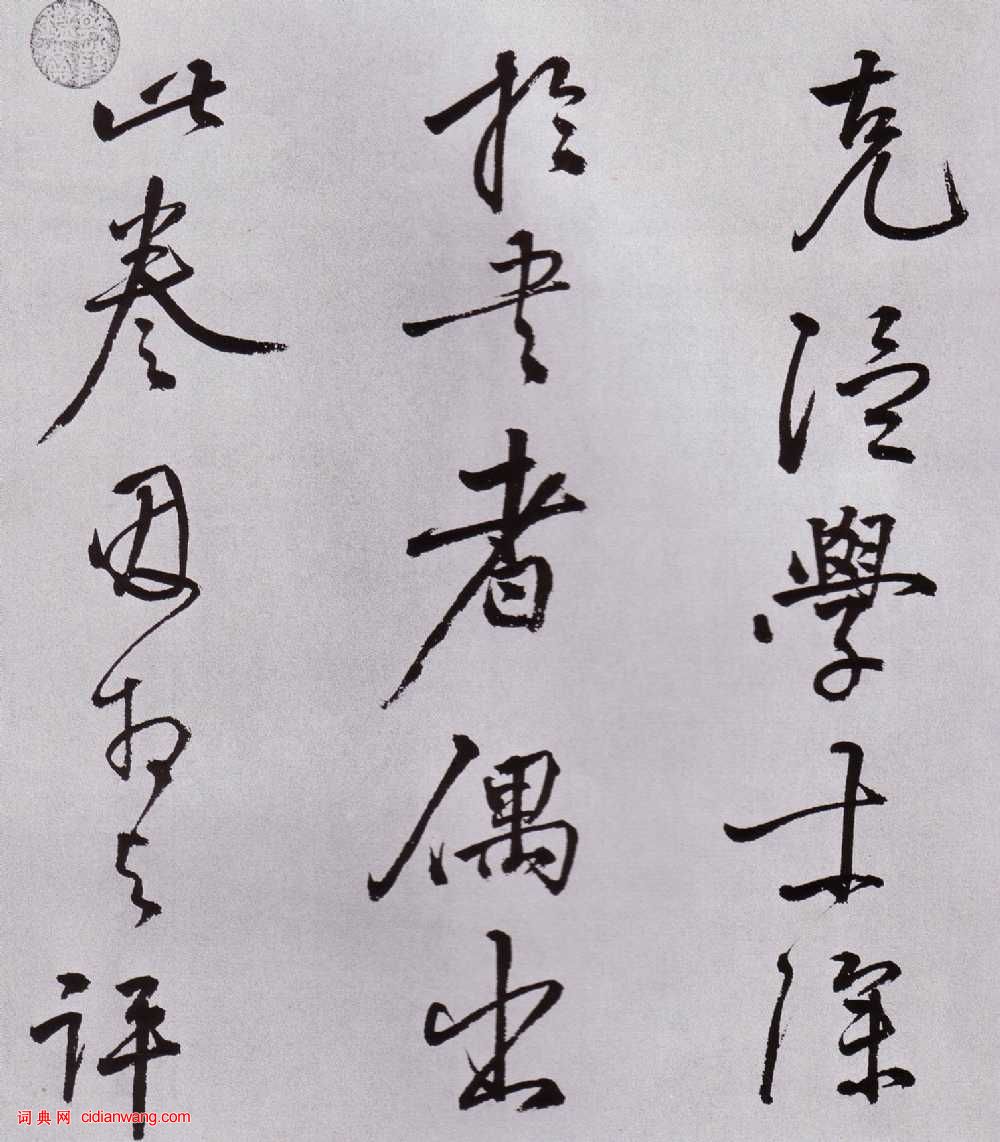 克温學士深
於書者偶出
此卷因相與評
词典网 cidianwang.com